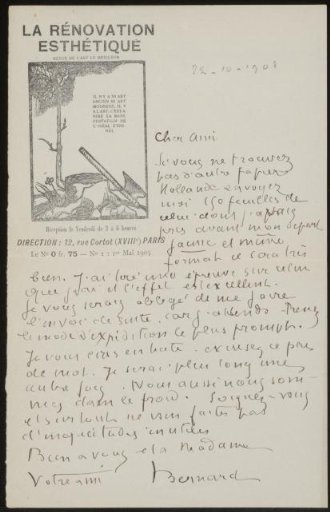 LA RÉNOVATION
ESTHÉTIQUE
REVUE DE L'ART LE MEILLEUR
IL N'Y A NI ART
ANCIEN NI ART
MODERNE, IL Y
A L'ART, C'EST A
DIRE LA MANI-
FESTATION DE
L'IDÉAL ÉTER-
NEL
Réception le Vendredi de 3 à 6 heures
DIRECTION : 12, rue Cortot (XVIIIe) PARIS
Le No 0 fr. 75 — No 1 : 1er Mai 1905
22-10-1908
Cher Ami
Si vous ne trouvez
pas d'autre papier
Hollande envoyez
moi 150 feuilles de
celui dont j'avais
pris avant mon départ
même
format ce sera très
bien. J'ai tiré une épreuve sur celui
que j'ai et l'effet est excellent.
Je vous serais obligé de me faire
l'envoi de suite, car j'attends. Prenez
le mode d'expédition le plus prompt.
Je vous écris en hâte. excusez ce peu
de mot. Je serai plus long une
autre fois. Vous aussi nous som-
mes dans le froid. Soignez-vous
et surtout ne vous faites pas
d'inquiétudes inutiles
Bien a vous et a Madame
Votre ami Bernard